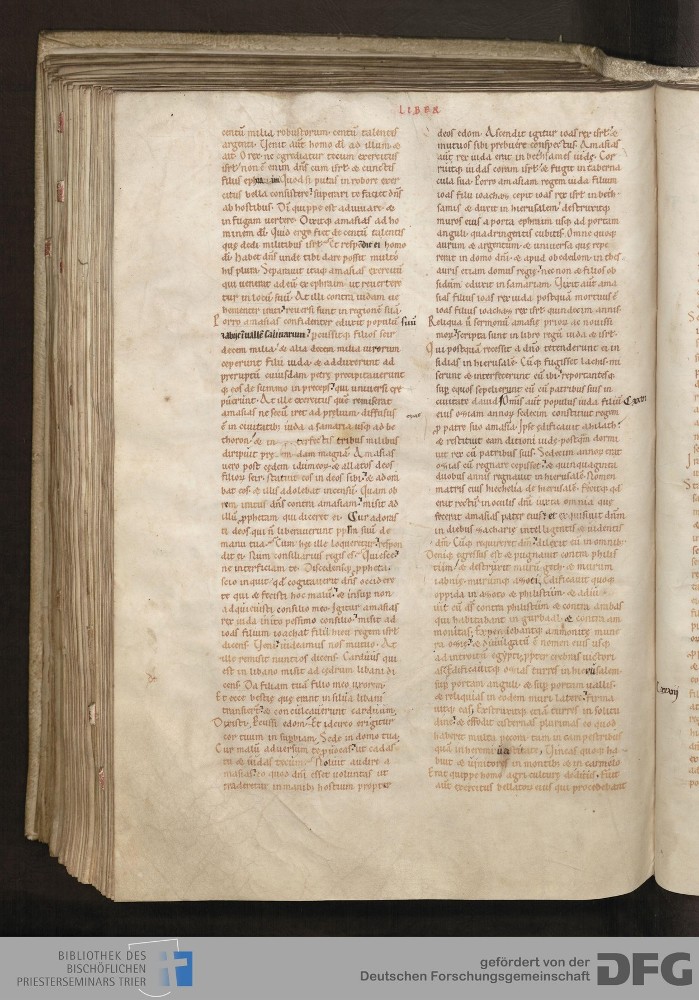 LIBER
centũ milia robustorum. centũ talentis
argenti. Venit aũt homo di ad illum. &
ait. O rex ne egrediatur tecum exercitus
isrl. non ẽ enim dñs cum isrl. & cunctis
filiis ephraim. Quod si putas in robore exer
citus bella consistere. superari te faciet dñs
ab hostibus. Di quippe est adiuuare. &
in fugam uertere. Dixitq; amasias ad ho
minem di. Quid ergo fiet de centũ talentis
que dedi militibus isrl. Et respdit ei homo
di. Habet dñs unde tibi dare possit multo
his plura. Separauit itaq; amasias exercitũ
qui uenerat ad eũ ex ephraim. ut reuertere
tur in locũ suũ. At illi contra iudam ue
hementer irati reuersi sunt in regionẽ suã.
Porro amasias confidenter eduxit populũ suũ
& abiit in uallẽ salinarum. percussitq; filios seir
decem milia. & alia decem milia uirorum
ceperunt filii iuda. & adduxerunt ad
preruptũ cuiusdam petre. precipitauerunt
q; eos de summo in preceps. qui uniuersi cre
puerunt. At ille exercitus quẽ remiserat
amasias ne secũ iret ad prelium. diffusus
ẽ in ciuitatib; iuda a samaria usq; ad be
thoron. & interfectis tribus milibus
diripuit predam magnã. Amasias
uero post cedem idumeorũ. & allatos deos
filiorũ seir. statuit eos in deos sibi. & adora
bat eos. & illis adolebat incensũ. Quam ob
rem iratus dñs contra amasiam. misit ad
illũ prophetam qui diceret ei. Cur adorasti
deos qui ñ liberauerunt pplm suũ de
manu tua. Cum hec ille loqueretur. respon
dit ei. Num consiliarius regis es. Quiesce
ne interficiam te. Discedensq; propheta.
scio inquit qd cogitauerit dñs occidere
te qui & fecisti hoc malũ. & insup non
adquieuisti consilio meo. Igitur amasias
rex iuda inito pessimo consilio. misit ad
ioas filium ioachaz filii hieu regem isrl
dicens. Veni uideamus nos mutuo. At
ille remisit nuntios dicens. Carduus qui
est in libano misit ad cedrum libani di
cens. Da filiam tuã filio meo uxorem.
Et ecce bestie que erant in silua libani
transierũt & conculcauerunt carduum.
Dixisti. Percussi edom. Et idcirco erigitur
cor tuum in supbiam. Sede in domo tua.
Cur malũ aduersum te puocas. ut cadas
tu & iudas tecum. Noluit audire a
masias. eo quod dñi esset uoluntas ut
traderetur in manib; hostium propter
deos edom. Ascendit igitur ioas rex isrl. &
mutuos sibi prebuere conspectus. Amasias
aũt rex iuda erat in bethsames iude. Cor
ruitq; iudas coram isrl. & fugit in taberna
cula sua. Porro amasiam regem iuda filium
ioas filii ioachaz. cepit ioas rex isrl in beth
sames. & duxit in hierusalem. destruxitq;
muros eius a porta ephraim usq; ad portam
anguli. quadringentis cubitis. Omne quoq;
aurum & argentum. & uniuersa que repe
rerat in domo dñi. & apud obededom in thes
auris etiam domus regie. nec non & filios ob
sidum eduxit in samariam. Vixit aũt ama
sias filius ioas rex iuda. postquã mortuus ẽ
ioas filius ioachaz rex isrl. quindecim annis.
Reliqua ũ sermonũ amasie priorũ & nouissi
morũ. scripta sunt in libro regũ iuda & isrl.
Qui postquã recessit a dño. tetenderunt ei in
sidias in hierusalẽ. Cũq; fugisset lachis. mi
serunt & interfecerunt eũ ibi. reportantesq;
sup equos. sepelierunt eũ cũ patribus suis in
ciuitate dauid. Omnis aũt populus iuda filiũ
eius oziam annorũ sedecim. constituit regem
pro patre suo amasia. Ipse edificauit ahilath.
& restituit eam ditioni iude. postquã dormi
uit rex cũ patribus suis. Sedecim annorũ erat
ozias cũ regnare cepisset. & quinquaginta
duobus annis regnauit in hierusalẽ. Nomen
matris eius hiechelia de hierusalẽ. Fecitq; qd
erat rectũ in oculis dñi. iuxta omnia que
fecerat amasias pater eius. et exquisiuit dñm
in diebus zacharie intellegentis & uidentis
dm. Cũq; requireret dm. direxit eũ in omnib;
Deniq; egressus est & pugnauit contra philis
tiim. & destruxit murũ geth. & murum
iabnie. murumq; azoti. Edificauit quoq;
oppida in azoto & philistiim. & adiu
uit eũ ds contra philistiim. & contra arabas
qui habitabant in gurbaal. & contra am
monitas. Expendebantq; ammonite mune
ra ozie. & diuulgatũ ẽ nomen eius usq;
ad introitũ egypti. propter crebras uictori
as. Edificauitq; ozias turres in hierusalem.
sup portam anguli. & sup portam uallis.
& reliquas in eodem muri latere. firma
uitq; eas. Exstruxitq; etiã turres in solitu
dine. & effodit cisternas plurimas. eo quod
haberet multa pecora tam in campestribus
quã in heremi uastitate. Vineas quoq; ha
buit & uinitores in montib; & in carmelo
Erat quippe homo agriculture deditus. Fuit
aũt exercitus bellatorũ eius qui procedebant
BIBLIOTHEK DES
BISCHÖFLICHEN
PRIESTERSEMINARS TRIER
gefördert von der
Deutschen Forschungsgemeinschaft
DFG